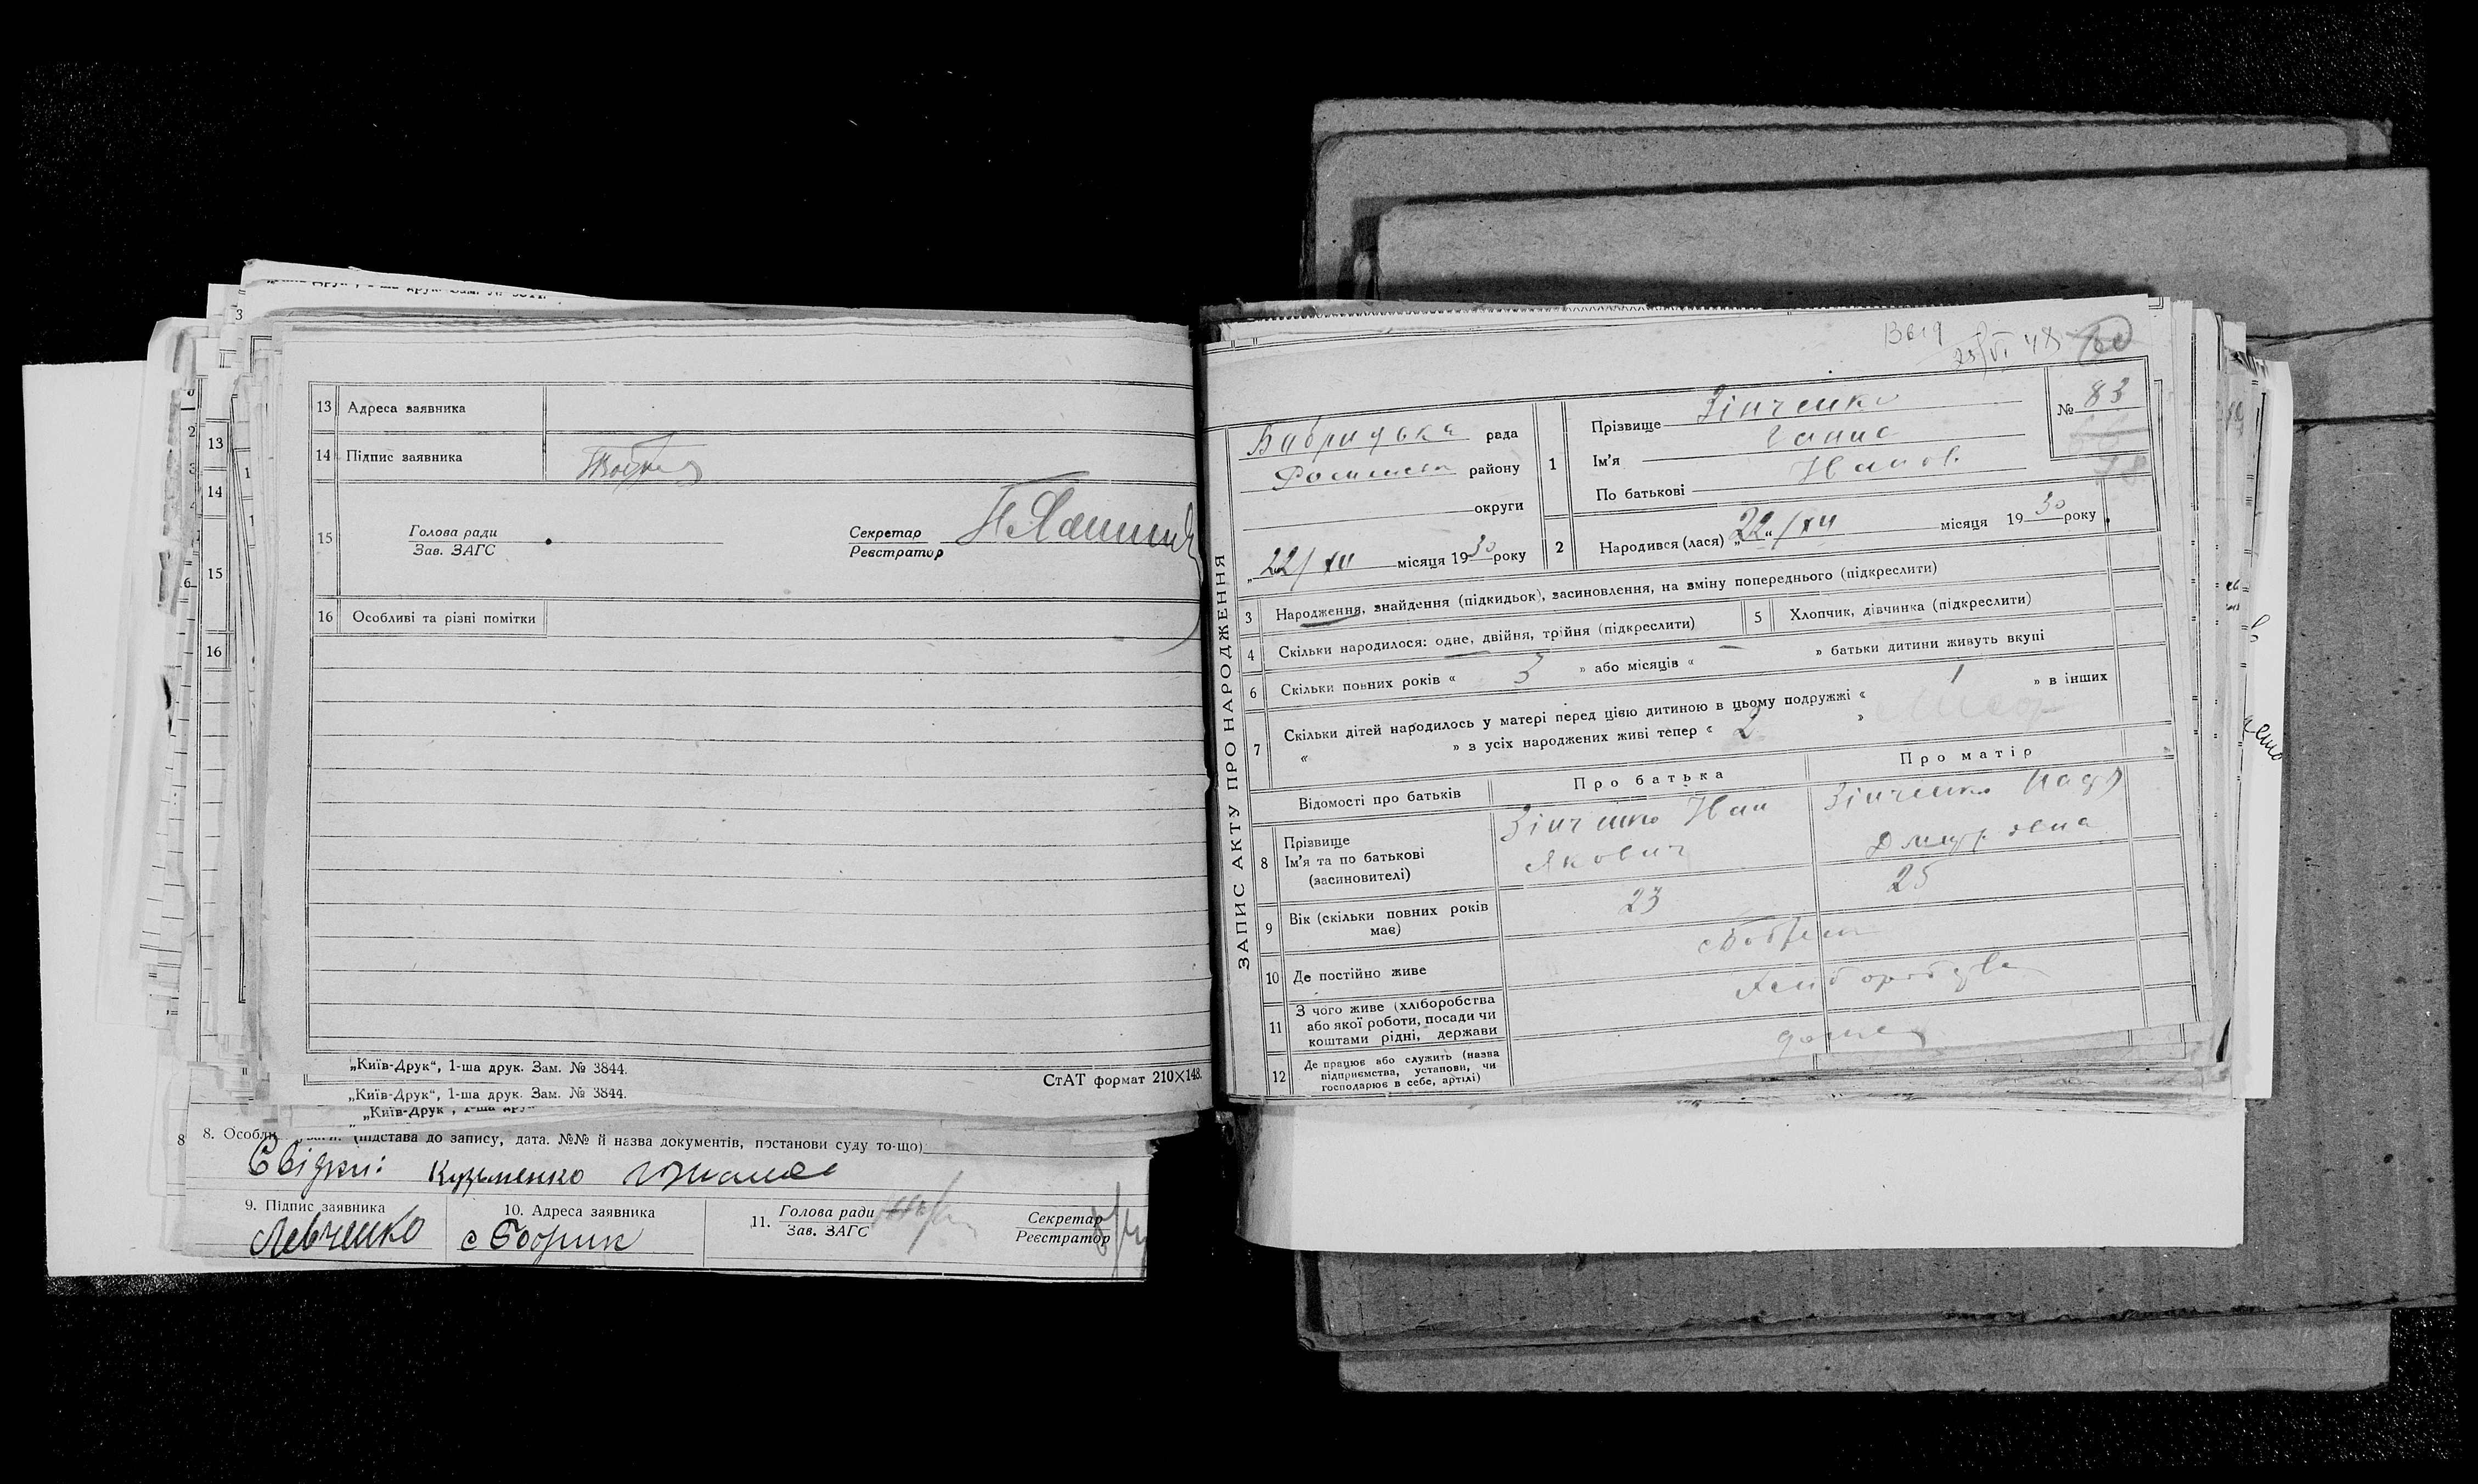 13 Адреса заявника
14 Підпис заявника
15 Голова ради
Зав. ЗАГС
Секретар
Реєстратор
16 Особливі та різні помітки
„Київ-Друк“, 1-ша друк. Зам. № 3844.
СтАТ формат 210×148.
„Київ-Друк“, 1-ша друк. Зам. № 3844.
8. Особли (підстава до запису, дата. №№ й назва документів, постанови суду то-що)
Свідки: Кузьменко
9. Підпис заявника
Левченко
10. Адреса заявника
с Бобрик
11. Голова ради
Зав. ЗАГС
Секретар
Реєстратор
13
14
15
16
ЗАПИС АКТУ ПРО НАРОДЖЕННЯ
23/VI 48
№ 83
Бобрицька рада
району
округи
„22/XII місяця 1930 року
1 Прізвище Зінченко
Ім'я Ганна
По батькові Иванов.
2 Народився (лася) „22“/XII місяця 1930 року
3 Народження, знайдення (підкидьок), засиновлення, на зміну попереднього (підкреслити)
4 Скільки народилося: одне, двійня, трійня (підкреслити)
5 Хлопчик, дівчинка (підкреслити)
6 Скільки повних років « 3 » або місяців « — » батьки дитини живуть вкупі
7 Скільки дітей народилось у матері перед цією дитиною в цьому подружжі « 1 » в інших
« » з усіх народжених живі тепер « 2 »
Відомості про батьків
Про батька
Про матір
8 Прізвище
Ім'я та по батькові
(засиновителі)
Зінченко Иван
Якович
Зінченко Надя
Дмитрівна
9 Вік (скільки повних років має)
23
25
10 Де постійно живе
с Бобрик
11 З чого живе (хліборобства
або якої роботи, посади чи
коштами рідні, держави
12 Де працює або служить (назва
підприємства, установи, чи
господарює в себе, артілі)